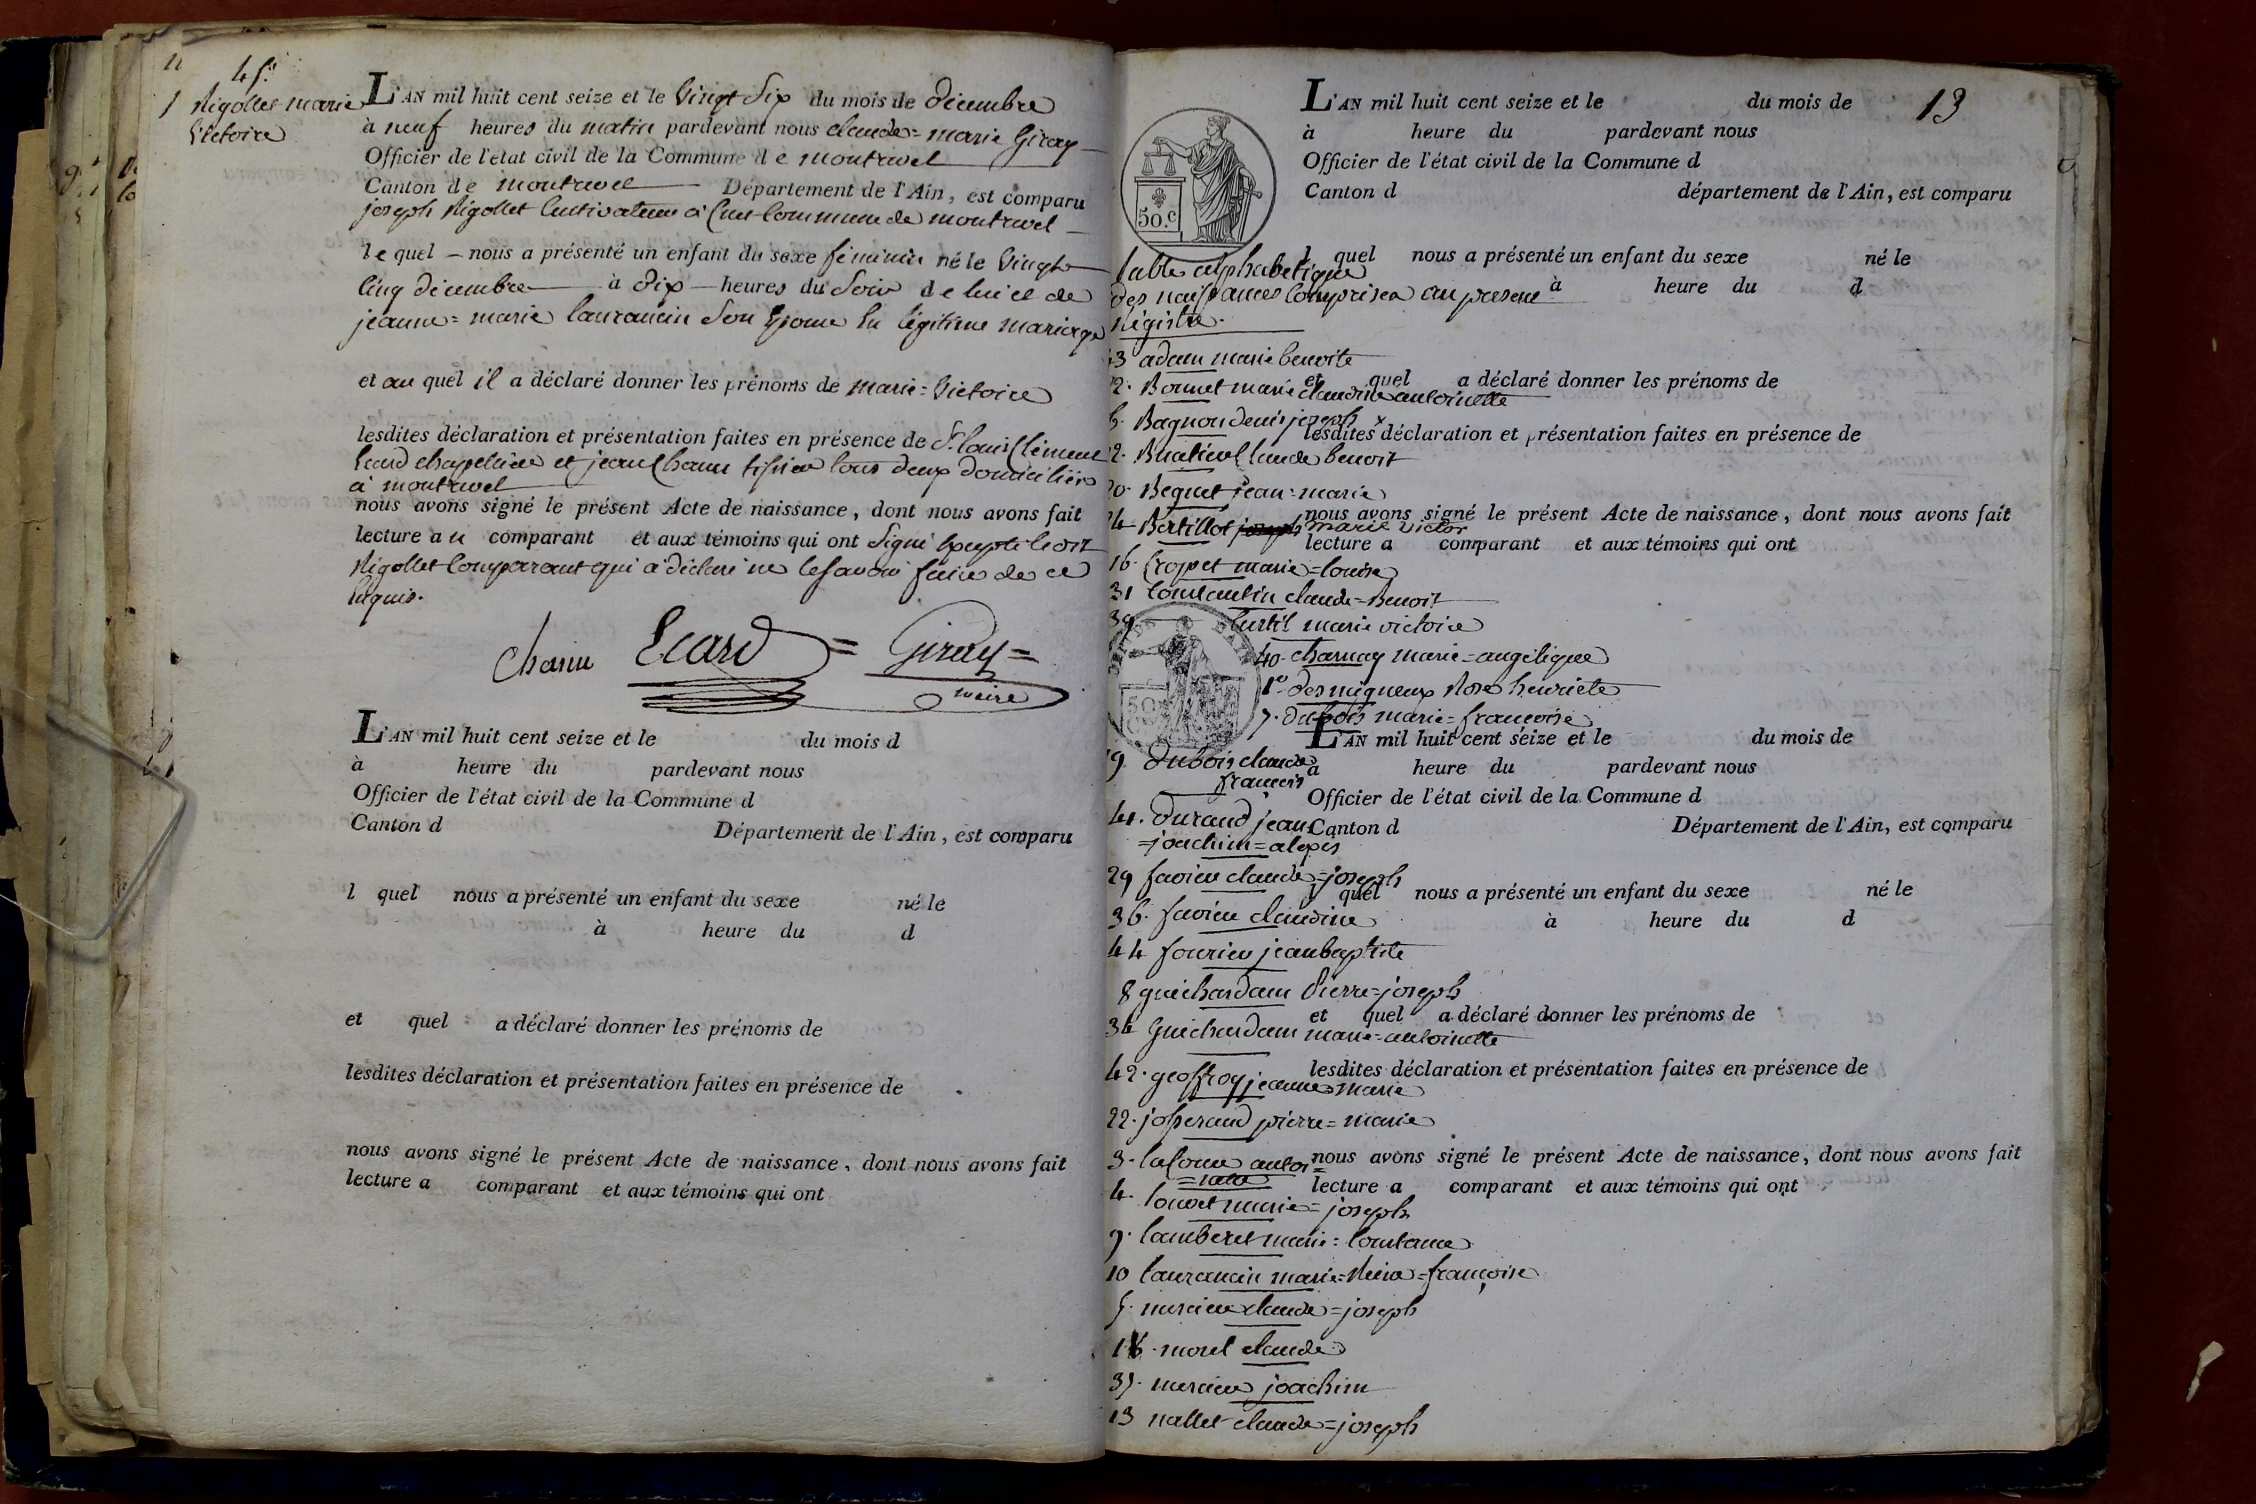 45.
Rigollet marie
Victoire
L'AN mil huit cent seize et le Vingt Six du mois de décembre
à neuf heures du matin pardevant nous claude=marie Giray
Officier de l'etat civil de la Commune de montrevel
Canton de montrevel Département de l'Ain, est comparu
joseph Rigollet Cultivateur à Cuet Commune de montrevel
lequel nous a présenté un enfant du sexe féminin né le Vingt
Cinq décembre à dix heures du Soir de lui et de
jeanne=marie laurancin Son Epouse En légitime mariage
et au quel il a déclaré donner les prénoms de marie=Victoire
lesdites déclaration et présentation faites en présence de Sr. louis Clément
Ecard chapellier et jean Chanu tissier tous deux domiciliés
à montrevel
nous avons signé le présent Acte de naissance, dont nous avons fait
lecture au comparant et aux témoins qui ont Signé Excepté ledit
Rigollet Comparant qui a déclaré ne le savoir faire de ce
Enquis.
Chanu Ecard = Giray =
maire
L'AN mil huit cent seize et le du mois d
à heure du pardevant nous
Officier de l'état civil de la Commune d
Canton d Département de l'Ain, est comparu
l quel nous a présenté un enfant du sexe né le
à heure du d
et quel a déclaré donner les prénoms de
lesdites déclaration et présentation faites en présence de
nous avons signé le présent Acte de naissance, dont nous avons fait
lecture a comparant et aux témoins qui ont
13
L'AN mil huit cent seize et le du mois de
à heure du pardevant nous
Officier de l'état civil de la Commune d
Canton d département de l'Ain, est comparu
50.c
l quel nous a présenté un enfant du sexe né le
à heure du d
table alphabetique
des naissances Comprises au present
Régistre.
adam marie benoite
Bonnet marie claudine antoinette
et quel a déclaré donner les prénoms de
Bagnon denis joseph
lesdites déclaration et présentation faites en présence de
Claude benoit
Bequet jean=marie
nous avons signé le présent Acte de naissance, dont nous avons fait
Bertillot joseph marie victor
lecture a comparant et aux témoins qui ont
16. Croppet marie=louise
31 Constantin claude=Benoit
39 Curtil marie victoire
40. charnay marie=angélique
1er. desmigneux Rose henriete
7. dubois marie=françoise
L'AN mil huit cent seize et le du mois de
19 dubois claude
francois
à heure du pardevant nous
Officier de l'état civil de la Commune d
41. durand jean
=joachim=alexis
Canton d Département de l'Ain, est comparu
29 favier claude=joseph
l quel nous a présenté un enfant du sexe né le
36. favier claudine
à heure du d
44 fourier jean baptiste
8 guichardam Pierre=joseph
et quel a déclaré donner les prénoms de
34 Guichardam marie=antoinette
lesdites déclaration et présentation faites en présence de
42. geoffroy jeanne marie
22. josserand pierre=marie
3. antoi=
nous avons signé le présent Acte de naissance, dont nous avons fait
lecture a comparant et aux témoins qui ont
4. louvet marie=joseph
9. lamberet marie=Constance
10 laurancin marie=Reine=françoise
5. mercier claude=joseph
morel claude
37. mercier joachim
13 nallet claude=joseph